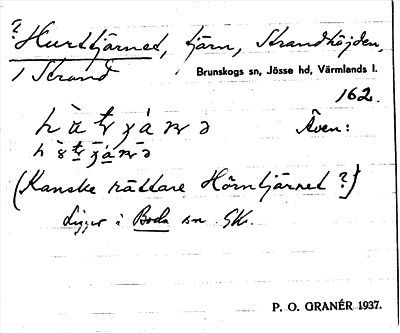 ? Hurttjärnet, tjärn, Strandhöjden,
i Strand
Brunskogs sn, Jösse hd, Värmlands l.
162.
Även:
(Kanske rättare Hörntjärnet?)
Ligger i Boda sn. GK.
P. O. GRANÉR 1937.